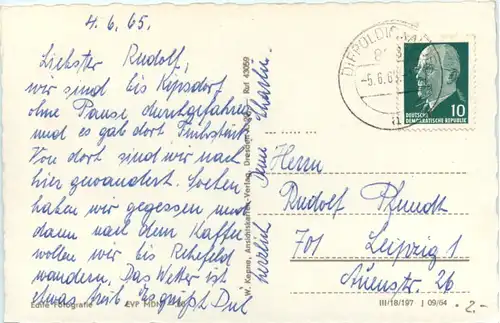 4.6.65.
Liebster Rudolf,
wir sind bis Kipsdorf
ohne Pause durchgefahren
und es gab dort Frühstück
Von dort sind wir nach
hier gewandert. Soeben
haben wir gegessen und
dann nach dem Kaffee
wollen wir bis Rehefeld
wandern. Das Wetter ist
etwas trüb. Es grüßt Dich
herzlich Deine
Echte Fotografie EVP MDN
W. Kepne, Ansichtskarten-Verlag, Dresden Ruf 43059
DIPPOLDISWALDE
-5.6.65
DEUTSCHE
DEMOKRATISCHE REPUBLIK
10
Herrn
Rudolf Pfundt
701 Leipzig 1
Auenstr. 26
III/18/197 J 09/64
-2.-